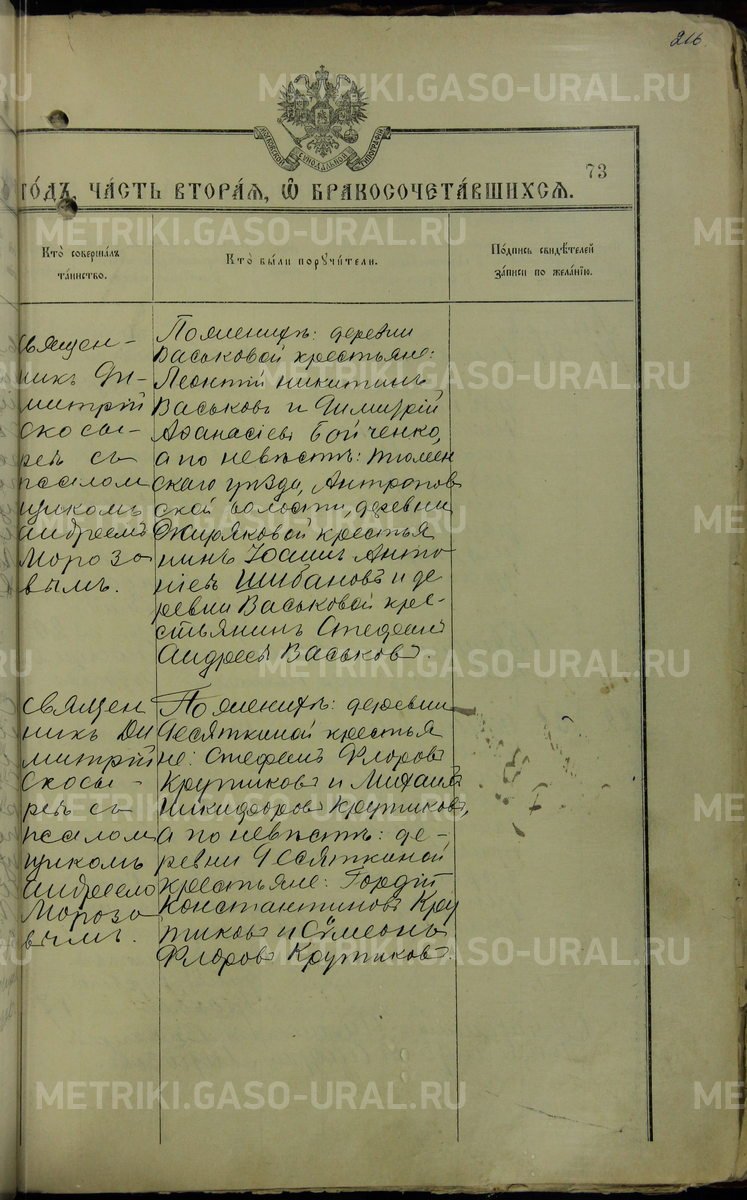 216.
METRIKI.GASO-URAL.RU
МОСКОВСКОЙ СѴНОДАЛЬНОЙ ТИПОГРАФІИ
73
ГО́ДЪ, ЧА́СТЬ ВТОРА́Я, Ѽ БРАКОСОЧЕТА́ВШИХСѦ.
Кто̀ соверша́лъ
та́инство.
Кто̀ бы́ли порꙋчи́тели.
По́дпись свидѣ́телей
за́писи по жела́нїю.
священ-
никъ Ди-
митрій
Скосы-
ревъ съ
псалом
щикомъ
Андреемъ
Морозо
вымъ.
По женихѣ: деревни
Васьковой крестьяне:
Леонтій Никитинъ
Васьковъ и Димитрій
Аѳанасіевъ Бойченко,
а по невѣстѣ: Тюмен
скаго уѣзда, Антропов
ской волости, деревни
Жиряковой крестья
нинъ Іоаннъ Анто-
ніевъ Шибановъ и де
ревни Васьковой кре-
стьянинъ Стефанъ
Андреевъ Васьковъ.
священ
никъ Ди
митрій
Скосы-
ревъ съ
псалом
щикомъ
Андреемъ
Морозо
вымъ.
По женихѣ: деревни
Чесяткиной крестья
не: Стефанъ Флоровъ
Крутиковъ и Михаилъ
Никифоровъ Крутиковъ,
а по невѣстѣ: де-
ревни Чесяткиной
крестьяне: Гордій
Константиновъ Кру
тиковъ и Сѵмеонъ
Флоровъ Крутиковъ.